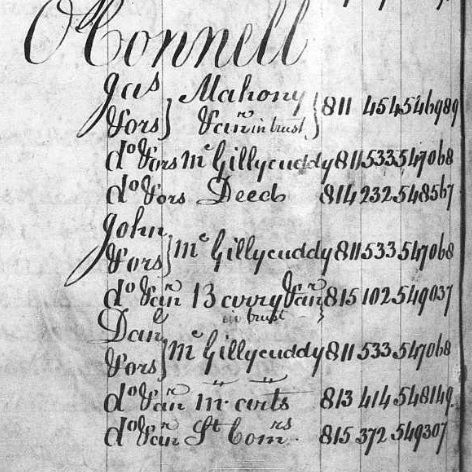 O'Connell
Jas Mahony
& ors } & anr in trust } 811 454 546989
do & ors McGillycuddy 811 533 547068
do & ors Deed 814 232 548567
John
& ors } McGillycuddy 811 533 547068
do & anr Barry & anr 815 102 549037
in trust
Danl
& ors } McGillycuddy 811 533 547068
do & anr 813 414 548149
do & anr St Comrs 815 372 549307